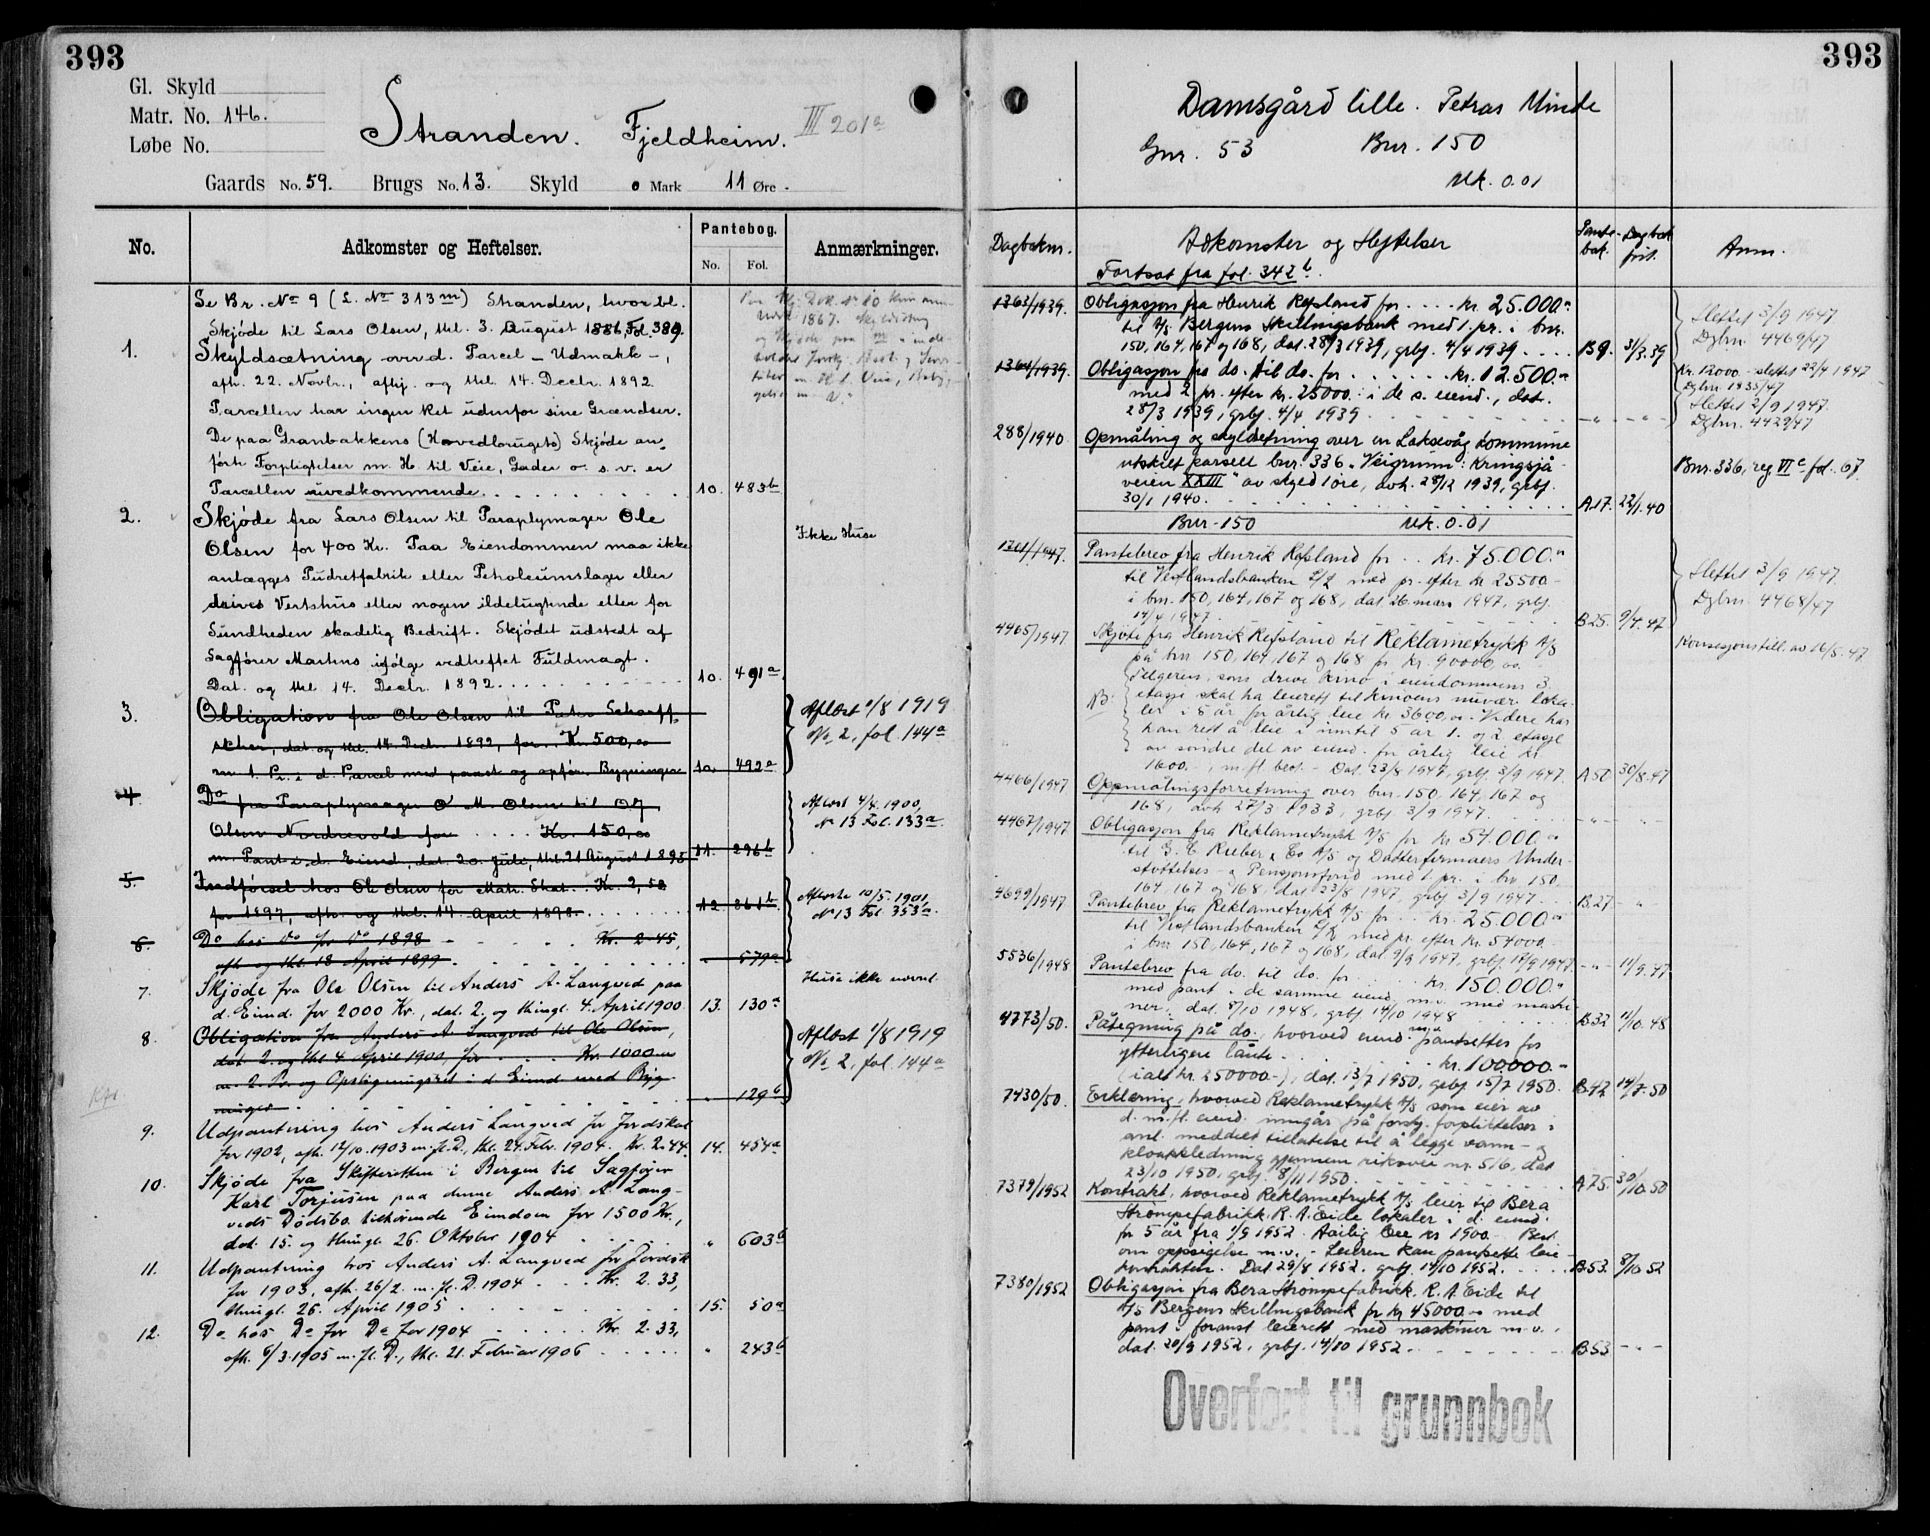 393
Gl. Skyld
Matr. No. 146.
Løbe No.
Stranden. Fjeldheim. III 201a
Gaards No. 59. Brugs No. 13. Skyld 0 Mark 11 Øre.
No. Adkomster og Heftelser. Pantebog. No. Fol. Anmærkninger.
Se Br. No 9 (L. No 313m) Stranden, hvor bl.
Skjøde til Lars Olsen, thl. 3. August 1886, Fol. 389.
1. Skyldsætning over d. Parcel – Udmark –,
afh. 22. Novbr., afhj. og thl. 14. Decbr. 1892.
Parcellen har ingen Ret udenfor sine Grændser.
De paa Granbakkens (Hovedbrugets) Skjøde an-
førte Forpligtelser m. H. til Veie, Gader o. s. v. er
Parcellen uvedkommende. 10. 483b
2. Skjøde fra Lars Olsen til Paraplymager Ole
Olsen for 400 Kr. Paa Eiendommen maa ikke
anlægges Pudretfabrik eller Petroleumslager eller
drives Vertshus eller nogen ildelugtende eller for
Sundheden skadelig Bedrift. Skjødet udstedt af
Sagfører Martens ifølge vedheftet Fuldmagt.
Dat. og thl. 14. Decbr. 1892. 10. 491a
Ikke Huse
3. Obligation fra Ole Olsen til Peter Scharff-
scher, dat. og thl. 14. Decbr. 1892, for Kr. 500,00
m. 1. Pr. i d. Parcel med paast. og opfør. Bygninger 10. 492a
Aflæst 1/8 1919
No 2, fol. 144a
4. Do fra Paraplymager O. M. Olsen til Olj
Olsen Nordrevold for Kr. 150,00
m. Pant i d. Eiend., dat. 20. Juli, thl. 21 August 1895 11. 296b
Aflæst 4/4. 1900,
No 13 Fol. 133a.
5. Indførsel hos Ole Olsen for Matr. Skat. Kr. 2,50
for 1897, afh. og thl. 14. April 1898. 12. 361b
Aflæste 10/5. 1901,
No 13 Fol. 353a.
6. Do hos do for do 1898 Kr. 2.45,
afh. og thl. 18 April 1899 " 579a
7. Skjøde fra Ole Olsen til Anders A. Langved paa
d. Eiend. for 2000 Kr., dat. 2. og thingl. 4. April 1900. 13. 130a
Huse ikke nævnt.
8. Obligation fra Anders A. Langved til Ole Olsen,
dat. 2. og thl. 4. April 1900, for Kr. 1000.00
m. 2. Pr. og Opsigningsret i d. Eiend. med Byg-
ninger " 129b
Aflæst 1/8 1919
No 2, fol. 144a
9. Udpantning hos Anders Langved for Jordskat
for 1902, afh. 12/10. 1903 m. fl. D., thl. 24. Febr. 1904. Kr. 2.44. 14. 454a
10. Skjøde fra Skifteretten i Bergen til Sagfører
Karl Torjusen paa denne Anders A. Lang-
veds Dødsbo tilhørende Eiendom for 1500 Kr.,
dat. 15. og thingl. 26. Oktober 1904 " 603b
11. Udpantning hos Anders A. Langved for Jordsk.
for 1903, afh. 26/2. m. fl. D. 1904 Kr. 2.33,
thingl. 26. April 1905 15. 50a
12. Do hos Do for Do for 1904 Kr. 2.33,
afh. 6/3. 1905 m. fl. D., thl. 21. Februar 1906 " 243b
393
Damsgård lille. Petras Minde
Gnr. 53 Bnr. 150
Mk. 0.01
Dagboknr. Adkomster og Heftelser Pante-bok. Dagbok ført. Anm.
Fortsat fra fol. 342b.
1363/1939. Obligasjon fra Henrik Refsland for kr. 25.000.00
til A/S Bergens Skillingsbank med 1. pr. i bnr.
150, 164, 167 og 168, dat. 28/3 1939, grbf. 4/4 1939 B9. 31/3.39
Slettet 3/9 1947
Dgbnr. 4469/47
1364/1939. Obligasjon fra do. til do. for kr. 12.500.00
med 2. pr. efter kr. 25000.- i de s. eiend., dat.
28/3 1939, grbf. 4/4 1939 – " – – " –
Kr. 12000.- slettet 22/4 1947
Dgbnr. 1935/47
Slettet 2/9 1947.
Dgbnr. 4429/47
288/1940. Opmåling og skyldeling over en Laksevåg kommune
utskilt parsell bnr. 336 "Veigrunn: Kringsjå-
veien XXIII" av skyld 1 øre, avh. 28/12 1939, grbf.
30/1 1940. A17. 22/1.40
Bnr. 336, reg. VIc fol. 67.
Bnr. 150 Mk. 0.01
1701/1947. Pantebrev fra Henrik Refsland for kr. 75.000.00
til Vestlandsbanken L/L med pr. efter kr. 25500.-
i bnr. 150, 164, 167 og 168, dat. 26. mars 1947, grbf.
14/4 1947. B25. 9/4.47
Slettet 3/9 1947.
Dgbnr. 4468/47
4465/1947 Skjøte fra Henrik Refsland til Reklametrykk A/S
på bnr. 150, 164, 167 og 168 for kr. 90000.00.
Selgeren, som drive kino i eiendommens 3.
etasje skal ha leierett til kinoens nuvær. loka-
ler i 5 år for årlig leie kr. 3600,00. Videre har
han rett å leie i inntil 5 år 1. og 2. etasje
av søndre del av eiend. for årlig leie kr.
1600.-, m. fl. best. – Dat. 23/8 1947, grbf. 3/9 1947. A50. 30/8.47
Konsesjonstill. av 16/8.47
4466/1947 Oppmålingsforretning over bnr. 150, 164, 167 og
168, avh. 27/3 1933, grbf. 3/9 1947. – " – – " –
4467/1947. Obligasjon fra Reklametrykk A/S for kr. 54.000.00
til G. C. Rieber & Co A/S og Datterfirmaers Under-
støttelses- & Pensjonsfond med 1. pr. i bnr. 150,
164, 167 og 168, dat. 23/8 1947, grbf. 3/9 1947. B.27 – " –
4699/1947. Pantebrev fra Reklametrykk A/S for kr. 25.000.00
til Vestlandsbanken L/L med pr. efter kr. 54000.-
i bnr. 150, 164, 167 og 168, dat. 9/9 1947, grbf. 17/9 1947. – " – 11/9.47
5536/1948 Pantebrev fra do. til do. for kr. 150.000.00
med pant i de samme eiend. m. v. med maski-
ner. dat. 8/10 1948, grbf. 14/10 1948 B32 11/10.48
4773/50. Påtegning på do., hvorved eiend. pantsettes for
ytterligere lånte kr. 100000.-
(ialt kr. 250000.-), dat. 13/7 1950, grbf. 15/7 1950. B42 14/7.50
7430/50. Erklæring, hvorved Reklametrykk A/S som eier av
d. m. fl. eiend. inngår på forsk. forpliktelser i
anl. meddelt tillatelse til å legge vann- og
kloakkledning gjennem riksvei nr. 516, dat.
23/10 1950, grbf. 8/11 1950. A75. 30/10.50
7379/1952 Kontrakt, hvorved Reklametrykk A/S leier til Bera
Strømpefabrikk R. A. Eide lokaler i d. eiend.
for 5 år fra 1/9 1952. Aarlig leie kr. 1900.- Best.
om oppsigelse m. v. – Leieren kan pantsette leie-
kontrakten. Dat. 29/8 1952. grbf. 14/10 1952. B53. 8/10 52
7380/1952 Obligasjon fra Bera Strømpefabrikk R. A. Eide til
A/S Bergens Skillingsbank for kr. 45000.00 med
pant i foranst. leierett med maskiner m. v.,
dat. 20/9 1952, grbf. 14/10 1952. B53 – " –
Overført til grunnbok